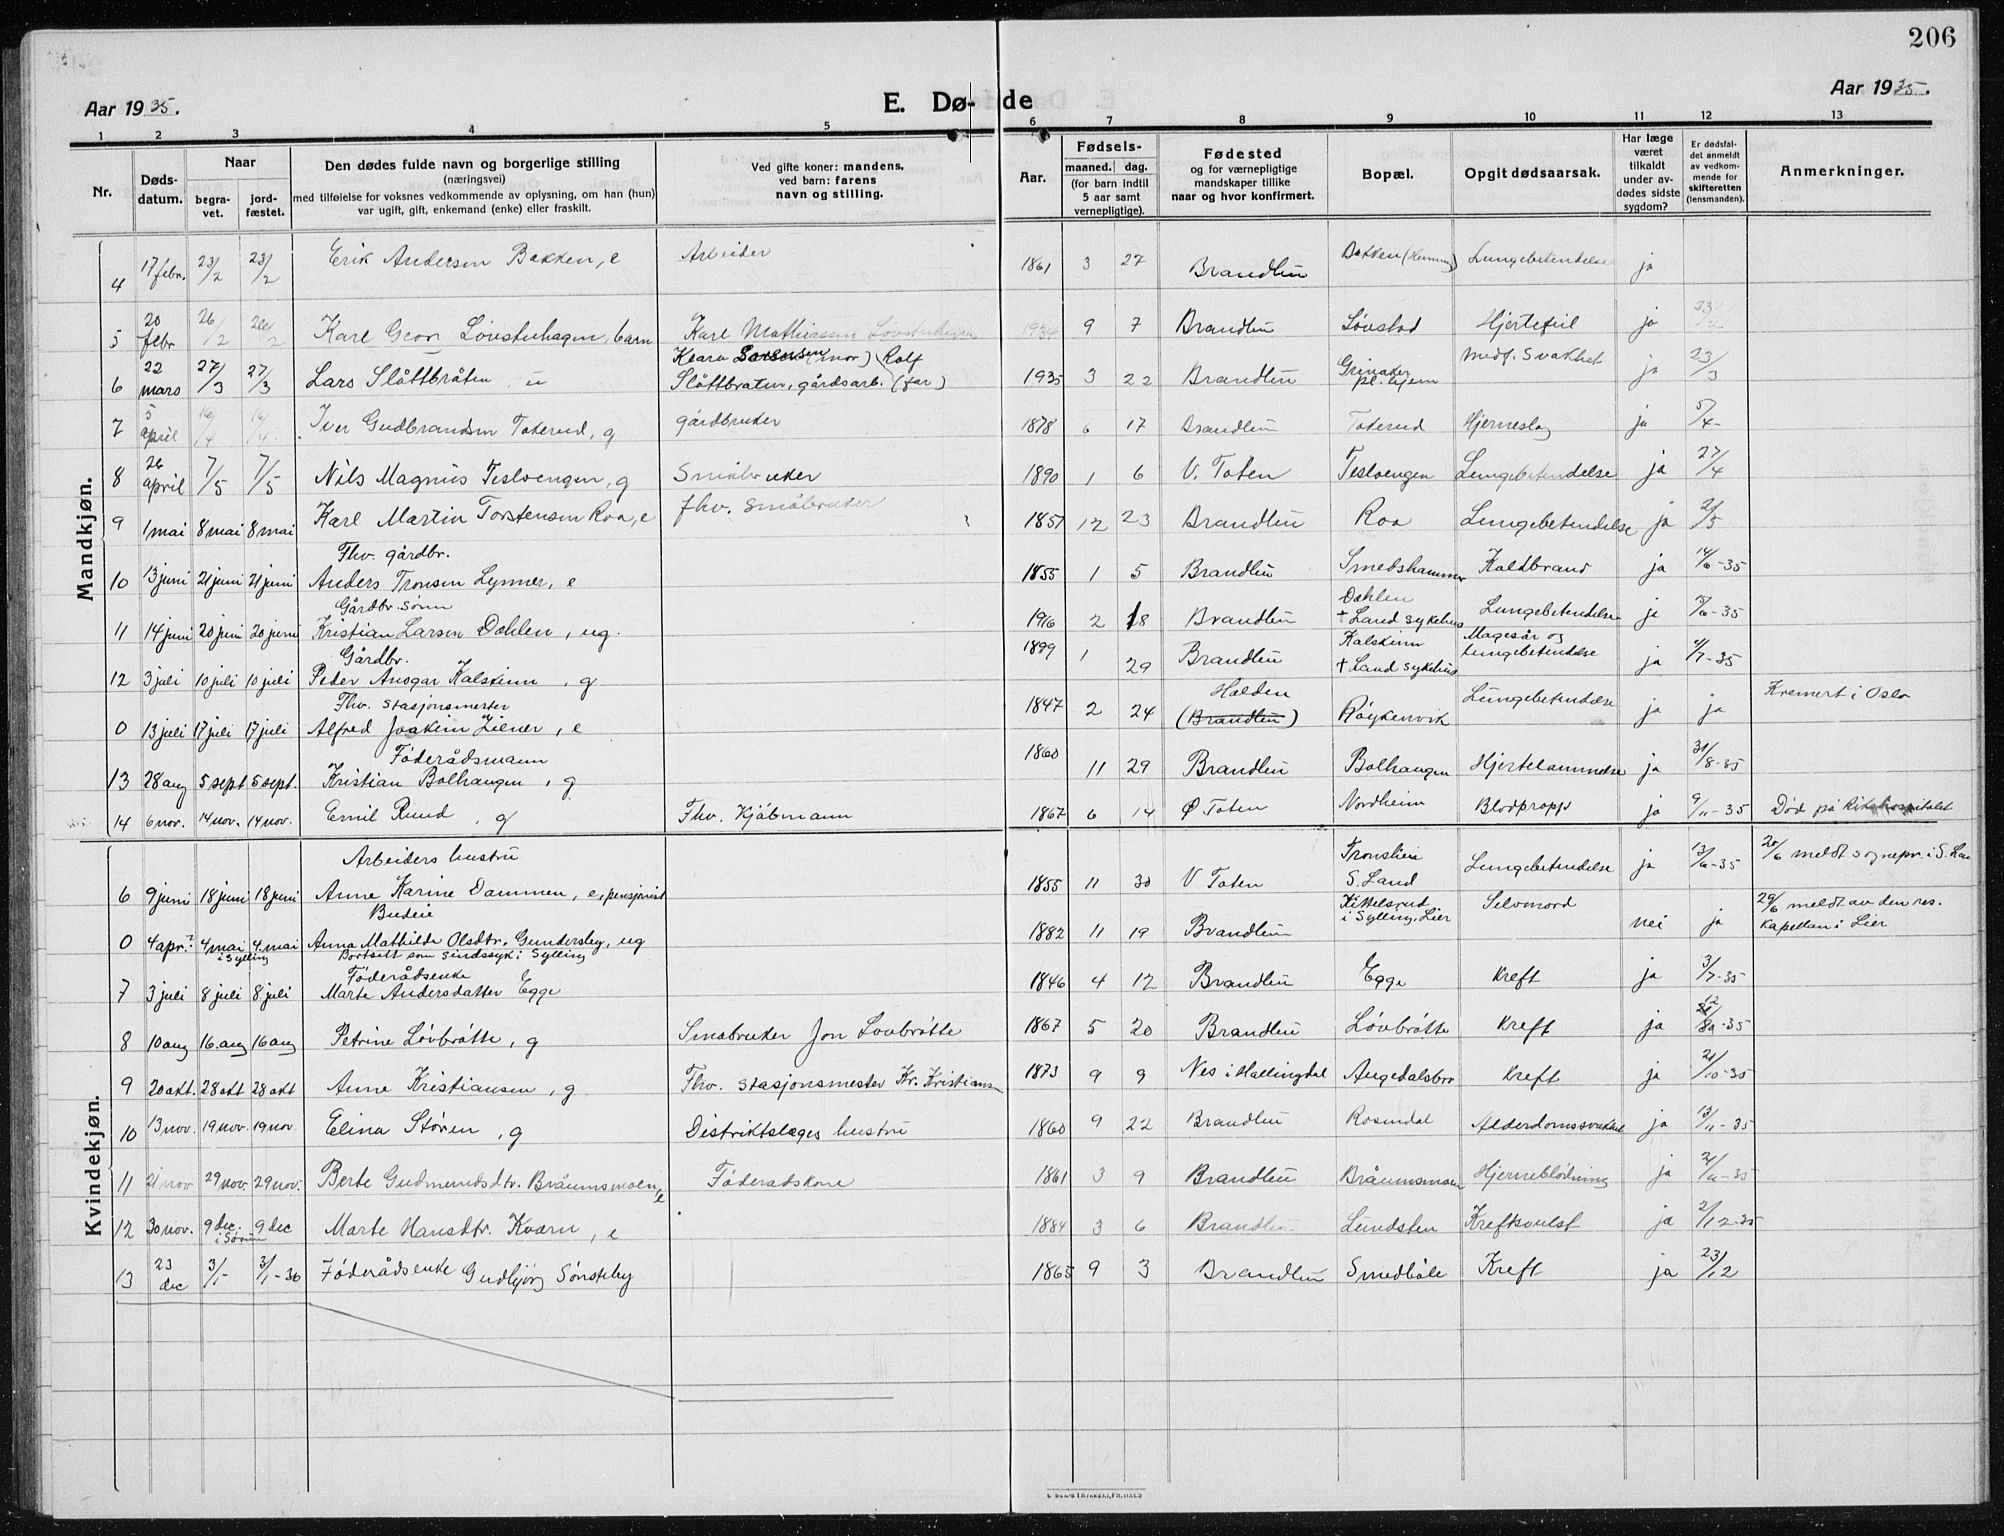 206
Aar 1935.
E. Dø-
de
Aar 1935.
1 2 3 4 5 6 7 8 9 10 11 12 13
Nr.
Døds-datum.
Naar
begra-vet.
jord-fæstet.
Den dødes fulde navn og borgerlige stilling
(næringsvei)
med tilføielse for voksnes vedkommende av oplysning, om han (hun)
var ugift, gift, enkemand (enke) eller fraskilt.
Ved gifte koner: mandens,
ved barn: farens
navn og stilling.
Aar.
Fødsels-
maaned. dag.
(for barn indtil
5 aar samt
vernepligtige).
Fødested
og for værnepligtige
mandskaper tillike
naar og hvor konfirmert.
Bopæl.
Opgit dødsaarsak.
Har læge
været
tilkaldt
under av-
dødes sidste
sygdom?
Er dødsfal-
det anmeldt
av vedkom-
mende for
skifteretten
(lensmanden).
Anmerkninger.
Mandkjøn.
4 17 febr. 23/2 23/2 Erik Andersen Bakken, e Arbeider 1861 3 27 Brandbu Bakken Lungebetendelse ja
5 20 febr 26/2 26/2 Karl Georg Løvstuhagen, barn Karl Mathiassen Løvstuhagen 1934 9 7 Brandbu Løvstad Hjertefeil ja 23/2
6 22 mars 27/3 27/3 Lars Slåttbråten, u Klara Sørensen (mor) Rolf
Slåttbraten, gårdsarb. (far) 1935 3 22 Brandbu Grinaker pl. hjem Medf. Svakhet ja 23/3
7 5 april 16/4 16/4 Iver Gudbrandsen Toterud, g gårdbruker 1878 6 17 Brandbu Toterud Hjerneslag ja 5/4
8 26 april 7/5 7/5 Nils Magnus Tesloengen, g Småbruker 1890 1 6 V. Toten Tesloengen Lungebetendelse ja 27/4
9 1 mai 8 mai 8 mai Karl Martin Torstensen Roa, e fhv. småbruker 1851 12 23 Brandbu Roa Lungebetendelse ja 2/5
Fhv. gårdbr.
10 13 juni 21 juni 21 juni Anders Tronsen Lynner, e 1855 1 5 Brandbu Smedshammer Koldbrand ja 14/6-35
Gårdbr. sønn
11 14 juni 20 juni 20 juni Kristian Larsen Dæhlen, ug. 1916 2 18 Brandbu Dæhlen + Land sykehus Lungebetendelse ja /6-35
Gårdbr.
12 3 juli 10 juli 10 juli Peder Ansgar Kalskinn, g 1899 1 29 Brandbu Kalskinn + Land sykehus Magesår og Lungebetendelse ja 4/7-35
Fhv. stasjonsmester
0 13 juli 17 juli 17 juli Alfred Joakim Zilner, e 1847 2 24 Halden (Brandbu) Røykenvik Lungebetendelse ja ja Kremert i Oslo
Føderådsmann
13 28 aug 5 sept 5 sept. Kristian Bolhaugen, g 1860 11 29 Brandbu Bolhaugen Hjertelammelse ja 31/8-35
14 6 nov. 14 nov. 14 nov. Emil Ruud, g Fhv. Kjøbmann 1867 6 14 Ø Toten Nordheim Blodpropp ja 9/11-35 Død på Rikshospitalet
Kvindekjøn.
Arbeiders hustru
6 9 juni 18 juni 18 juni Anne Karine Dammen, e, pensjonist 1855 11 30 V Toten Tronslien S. Land Lungebetendelse ja 13/6-35 20/6 meldt sognepr. i S. Land
Budeie
0 4 apr.? 4 mai i Sylling 4 mai Anna Mathilde Olsdtr. Gundersby, ug
Bortsatt som sindssyk i Sylling 1882 11 19 Brandbu Kittelsrud i Sylling, Lier Selvmord nei ja 29/6 meldt av den res. Kapellan i Lier
Føderådsenke
7 3 juli 8 juli 8 juli Marte Andersdatter Egge 1846 4 12 Brandbu Egge Kreft ja 3/7-35
8 10 aug 16. aug 16 aug Petrine Løvbråtte, g Småbruker Jon Løvbråtte 1867 5 20 Brandbu Løvbråtte Kreft ja 12/8-35
9 20 okt. 28 okt 28 okt Anne Kristiansen, g Fhv. stasjonsmester Kr. Kristiansen 1873 9 9 Nes i Hallingdal Augedalsbro Kreft ja 21/10-35
10 13 nov. 19 nov. 19 nov. Elina Støren, g Distriktslæges hustru 1860 9 22 Brandbu Rosendal Alderdomssvakhet ja 13/11-35
11 21 nov 29 nov. 29 nov. Berte Gudmundsdtr. Bråumsmoen, e Føderadskone 1861 3 9 Brandbu Bråumsmoen Hjerneblødning ja 21/11-35
12 30 nov. 9 dec. i Sørum 9 dec Marte Hansdtr. Kværn, e 1884 3 6 Brandbu Lundsten Kreftsvulst ja 2/12-35
13 23 dec 3/1 3/1-36 Føderådsenke Gudbjørg Sønsteby 1865 9 3 Brandbu Smedbøle Kreft ja 23/12